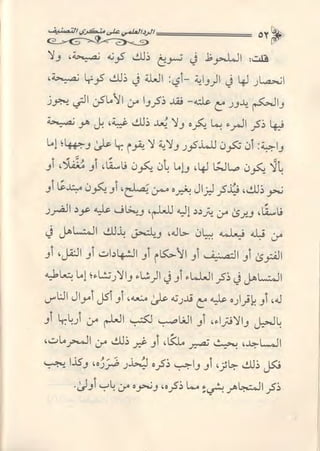 ٥٢ الرد العلمي على منكري التصنيف
قلت: الملحوظ في تسويغ ذلك كونه نصيحة، ولا
انحصار لها في الرواية -أي: العلة في ذلك كونها نصيحة،
والحكم يدور مع علته- فقد ذكروا من الأماكن التي يجوز
فيها ذكر المرء بما يكره ولا يُعدُّ ذلك غيبة، بل هو نصيحة
واجبة: أن تكون للمذكور ولاية لا يقوم بها على وجهها؛ إما
بألَّا يكون صالحًا لها، وإما بأن يكون فاسقًا، أو مُغفَّلًا، أو
نحو ذلك، فيُذكر ليزال بغيره ممن يَصلح، أو يكون مبتدعًا أو
فاسقًا، ويرى من يتردد إليه للعلم، ويخاف عليه عود الضرر
من قبله فيعلمه ببيان حاله، ويلتحق بذلك المتساهل في
الفتوى أو التصنيف أو الأحكام أو الشهادات أو النقل، أو
المتساهل في ذكر العلماء أو في الرشا والارتشاء؛ إما بتعاطيه
له، أو بإقراره عليه مع قدرته على منعه، أو أكل أموال الناس
بالحيل والافتراء، أو الغاصب لكتب العلم من أربابها أو
المساجد، بحيث تصير ملكًا، أو غير ذلك من المحرمات،
فكل ذلك جائز، أو واجب ذكره ليُحذر ضَرَرُه، وكذا يجب
ذكر المتجاهر بشيء مما ذكره، ونحوه من باب أولى.